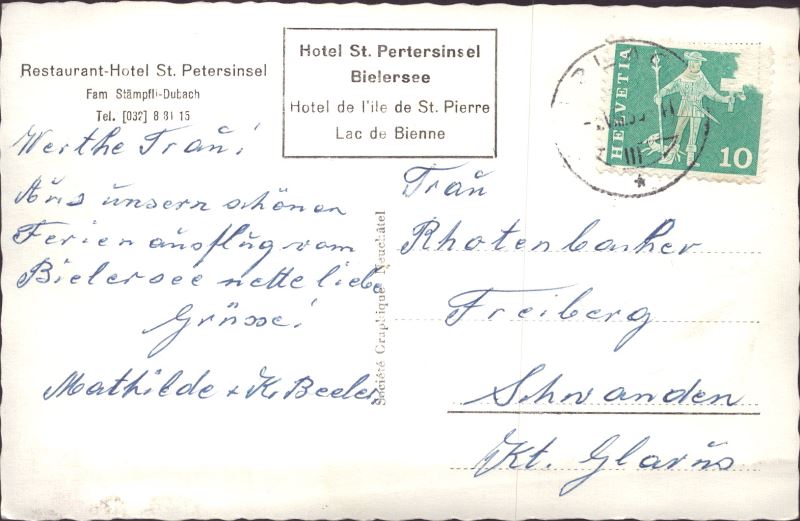 Restaurant-Hotel St. Petersinsel
Fam Stämpfli-Dubach
Tel. [032] 8 81 15
Hotel St. Pertersinsel
Bielersee
Hotel de l'ile de St. Pierre
Lac de Bienne
HELVETIA
10
Werthe Frau!
Aus unsern schönen
Ferienausflug vom
Bielersee nette liebe
Grüsse!
Mathilde + K. Beeler
Société Graphique Neuchâtel
Frau
Rhotenbacher
Freiberg
Schwanden
Kt. Glarus